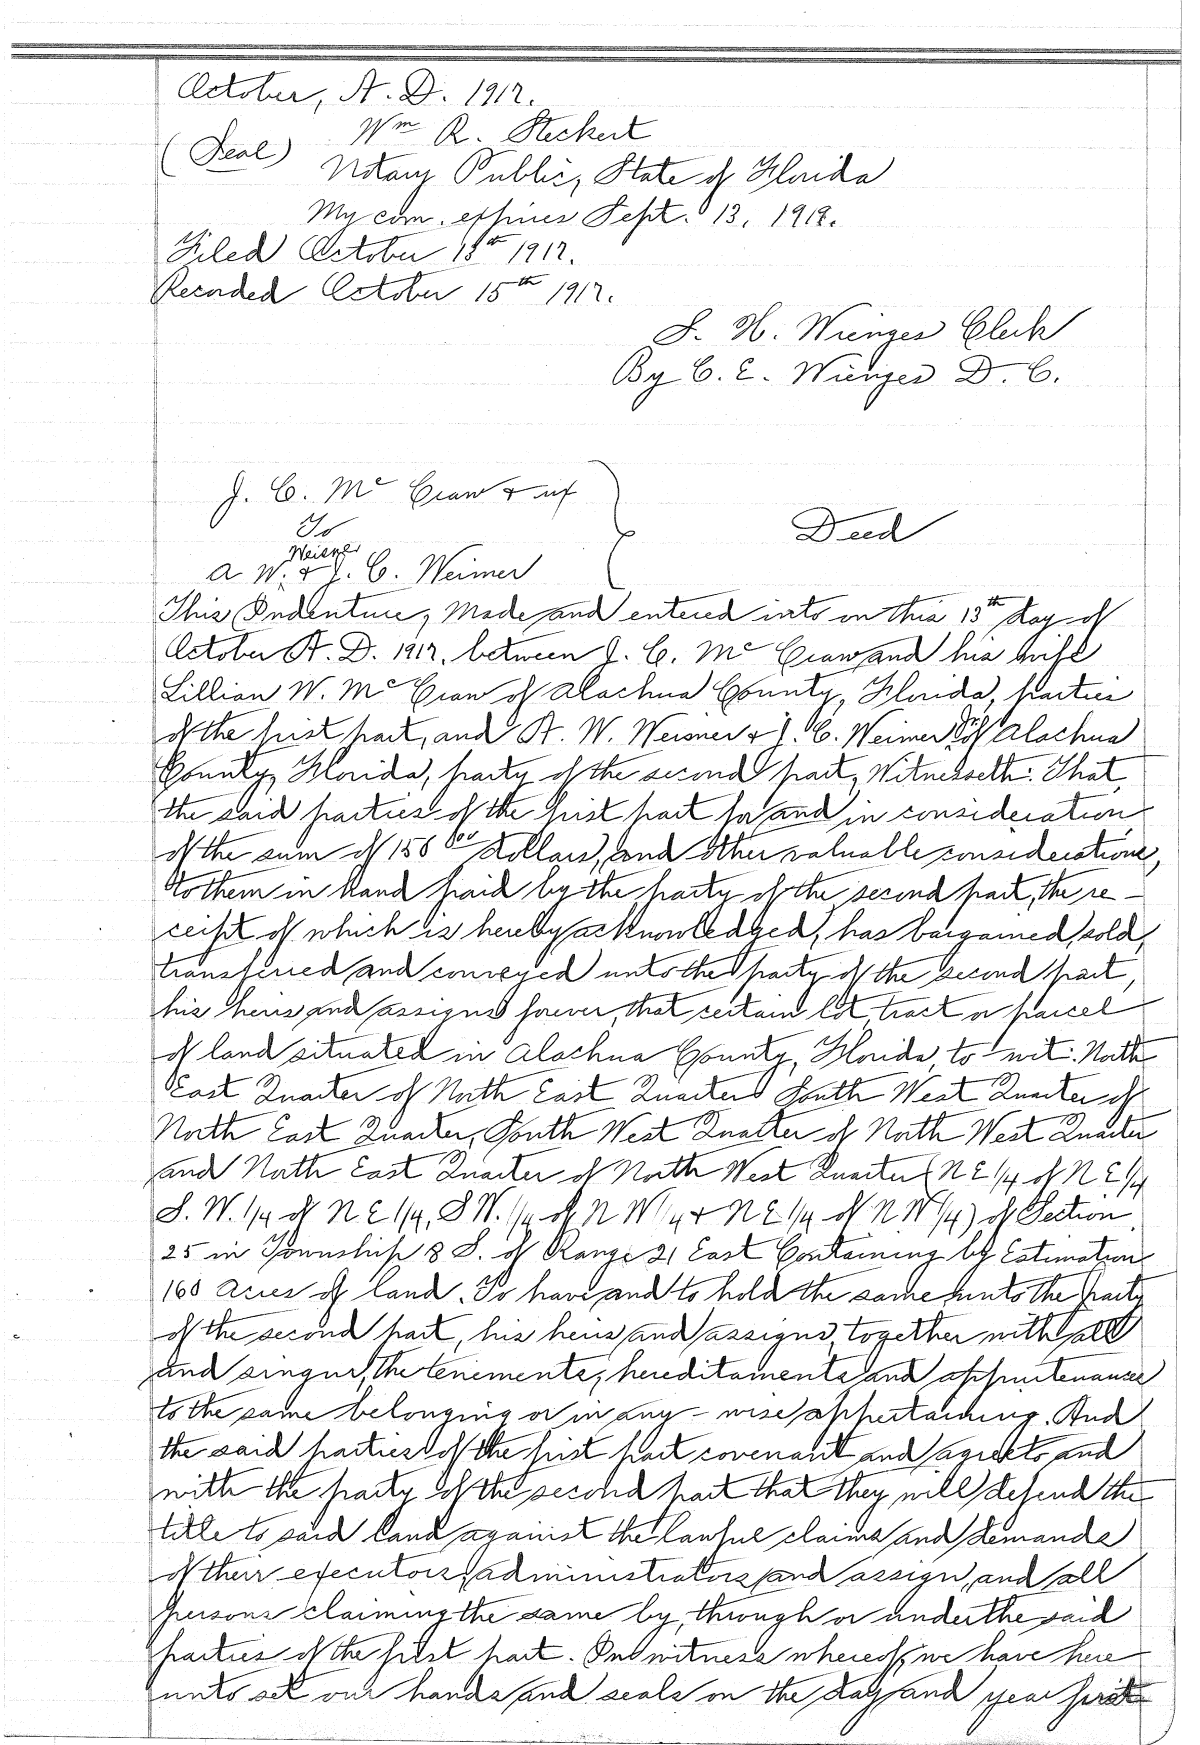 October, A. D. 1917.
Wm R. Steckert
(Seal)
Notary Public, State of Florida
My com. expires Sept. 13, 1919.
Filed October 15th 1917.
Recorded October 15th 1917.
S. H. Wienges Clerk
By C. E. Wienges D. C.
J. C. Mc Craw & ux
To
Deed
Weisner
A W. & J. C. Weimer
This Indenture, Made and entered into on this 13th day of
October A. D. 1917, between J. C. Mc Craw and his wife
Lillian W. Mc Craw of Alachua County, Florida, parties
of the first part, and A. W. Weisner & J. C. Weimer of Alachua
County, Florida, party of the second part, Witnesseth: That,
the said parties of the first part for and in consideration
of the sum of 150 00 dollars, and other valuable considerations,
to them in hand paid by the party of the second part, the re-
ceipt of which is hereby acknowledged, has bargained, sold,
transferred and conveyed unto the party of the second part,
his heirs and assigns forever, that certain lot, tract or parcel
of land situated in Alachua County, Florida, to-wit: North
East Quarter of North East Quarter South West Quarter of
North East Quarter, South West Quarter of North West Quarter
and North East Quarter of North West Quarter (N E 1/4 of N E 1/4
S. W. 1/4 of N E 1/4, S W. 1/4 of N W 1/4 & N E 1/4 of N W 1/4) of Section
25 in Township 8 S. of Range 21 East Containing by Estimation
160 Acres of land. To have and to hold the same unto the party
of the second part, his heirs and assigns, together with all
and singur, the tenements, hereditaments and appurtenances
to the same belonging or in any-wise appertaining. And
the said parties of the first part covenant and agree to and
with the party of the second part that they will defend the
title to said land against the lawful claims and demands
of their executors, administrators and assign, and all
persons claiming the same by, through or under the said
parties of the first part. In witness whereof, we have here
unto set our hands and seals on the day and year first